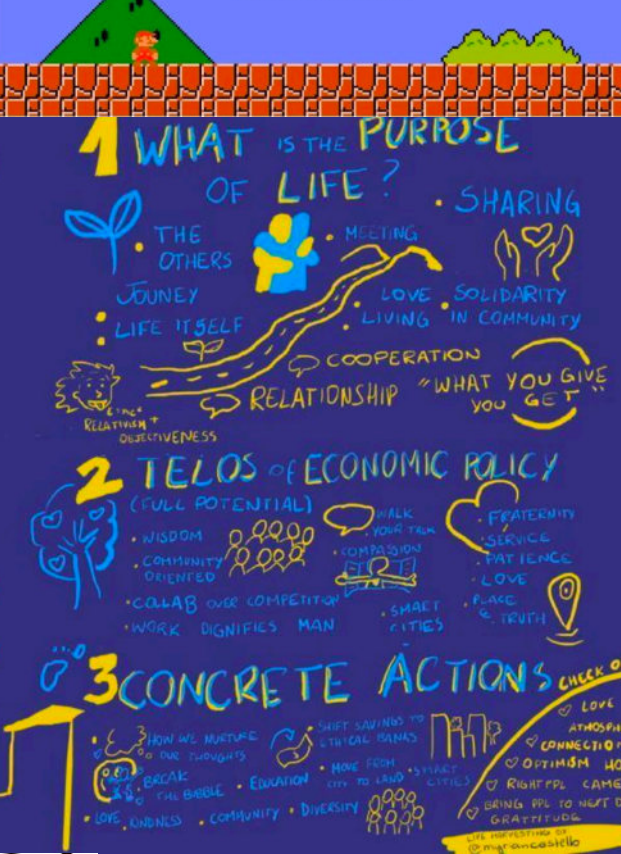 1 WHAT IS THE PURPOSE
OF LIFE?
• SHARING
• THE
OTHERS
• MEETING
JOUNEY
• LIFE ITSELF
• LOVE
LIVING
• SOLIDARITY
IN COMMUNITY
COOPERATION
RELATIONSHIP
"WHAT YOU GIVE
YOU GET"
RELATIVISM +
OBJECTIVENESS
2 TELOS OF ECONOMIC POLICY
(FULL POTENTIAL)
• WISDOM
• COMMUNITY
ORIENTED
• COLLAB OVER COMPETITION
• WORK DIGNIFIES MAN
• WALK
YOUR TALK
• COMPASSION
• SMART
CITIES
• FRATERNITY
• SERVICE
• PATIENCE
• LOVE
• PLACE
& TRUTH
3 CONCRETE ACTIONS
• HOW WE NURTURE
OUR THOUGHTS
• BREAK
THE BABBLE
• EDUCATION
• SHIFT SAVINGS TO
ETHICAL BANKS
• MOVE FROM
CITY TO LAND
• SMART
CITIES
• LOVE • KINDNESS • COMMUNITY • DIVERSITY
CHECK O
LOVE
ATMOSPH
CONNECTIO
OPTIMISM HO
RIGHT PPL CAME
BRING PPL TO NEXT D
GRATTITUDE
LIFE HARVESTING BY
@myriancastello